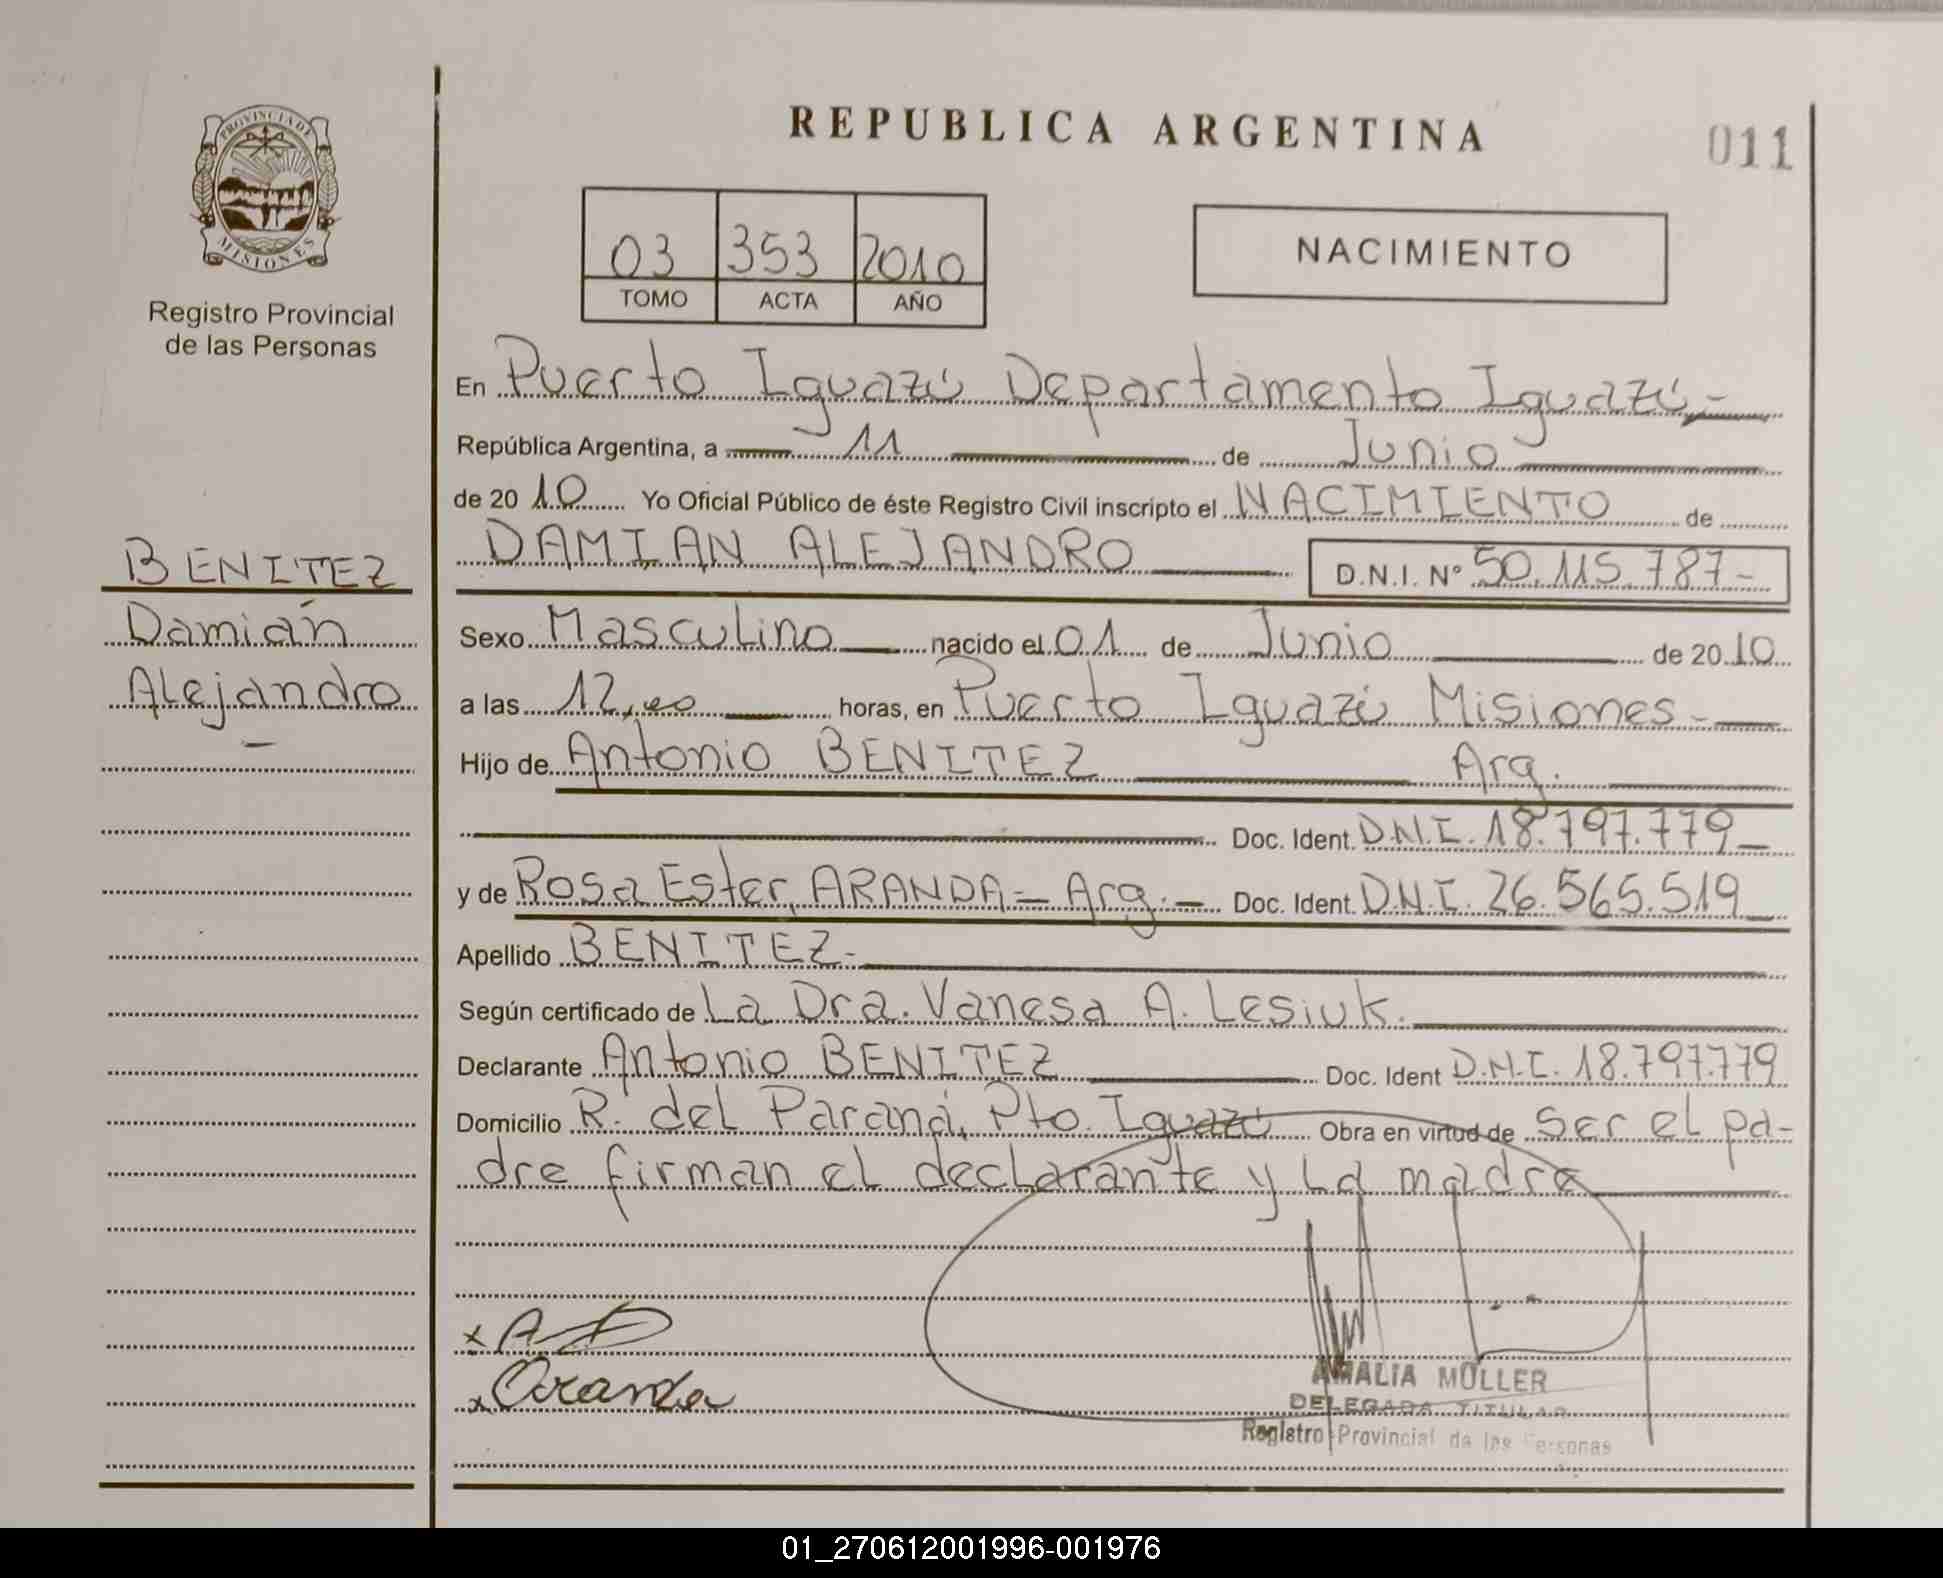 PROVINCIA DE
MISIONES
Registro Provincial
de las Personas
BENITEZ
Damián
Alejandro
REPUBLICA ARGENTINA
011
03 353 2010
TOMO ACTA AÑO
NACIMIENTO
En Puerto Iguazú Departamento Iguazú
República Argentina, a 11 de Junio
de 20 10 Yo Oficial Público de éste Registro Civil inscripto el NACIMIENTO de
DAMIAN ALEJANDRO D.N.I. Nº 50.115.787-
Sexo Masculino nacido el 01 de Junio de 20 10
a las 12,00 horas, en Puerto Iguazú Misiones
Hijo de Antonio BENITEZ Arg.
Doc. Ident. D.N.I. 18.797.779
y de Rosa Ester, ARANDA= Arg.- Doc. Ident. D.N.I. 26.565.519
Apellido BENITEZ-
Según certificado de La Dra. Vanesa A. Lesiuk.
Declarante Antonio BENITEZ Doc. Ident D.N.I. 18.797.779
Domicilio R. del Paraná, Pto. Iguazú Obra en virtud de ser el pa-
dre firman el declarante y la madre
x
x Aranda
AMALIA MÜLLER
DELEGADA TITULAR
Registro Provincial de las Personas
01_270612001996-001976